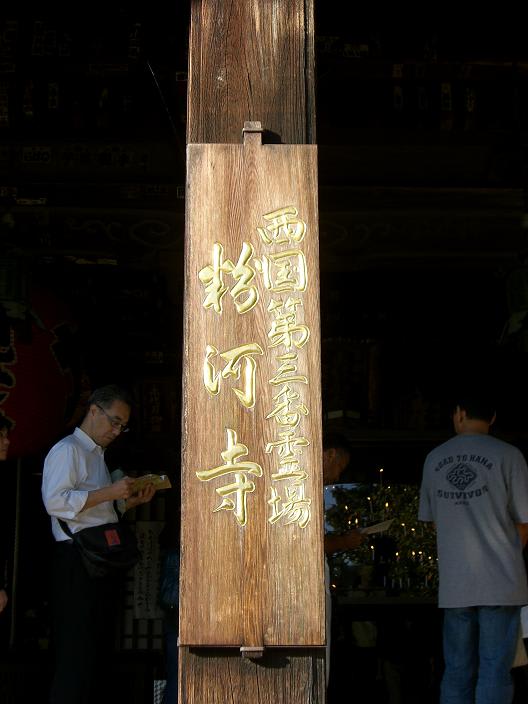 西国第三番霊場
粉河寺
ROAD TO HANA
SURVIVOR
MAUI